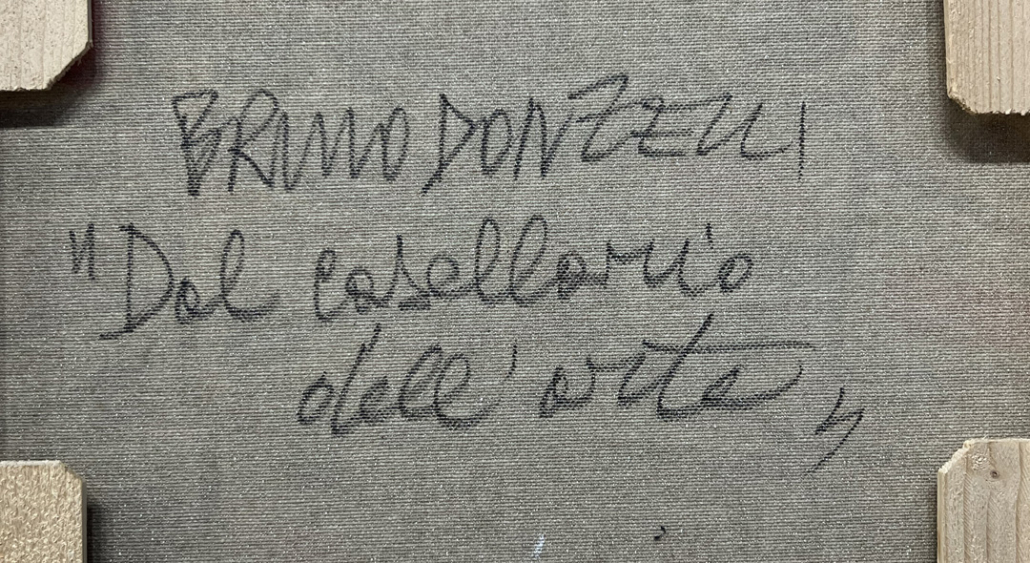 BRUNO DONZELLI
"Dal casellario
dell'arte"